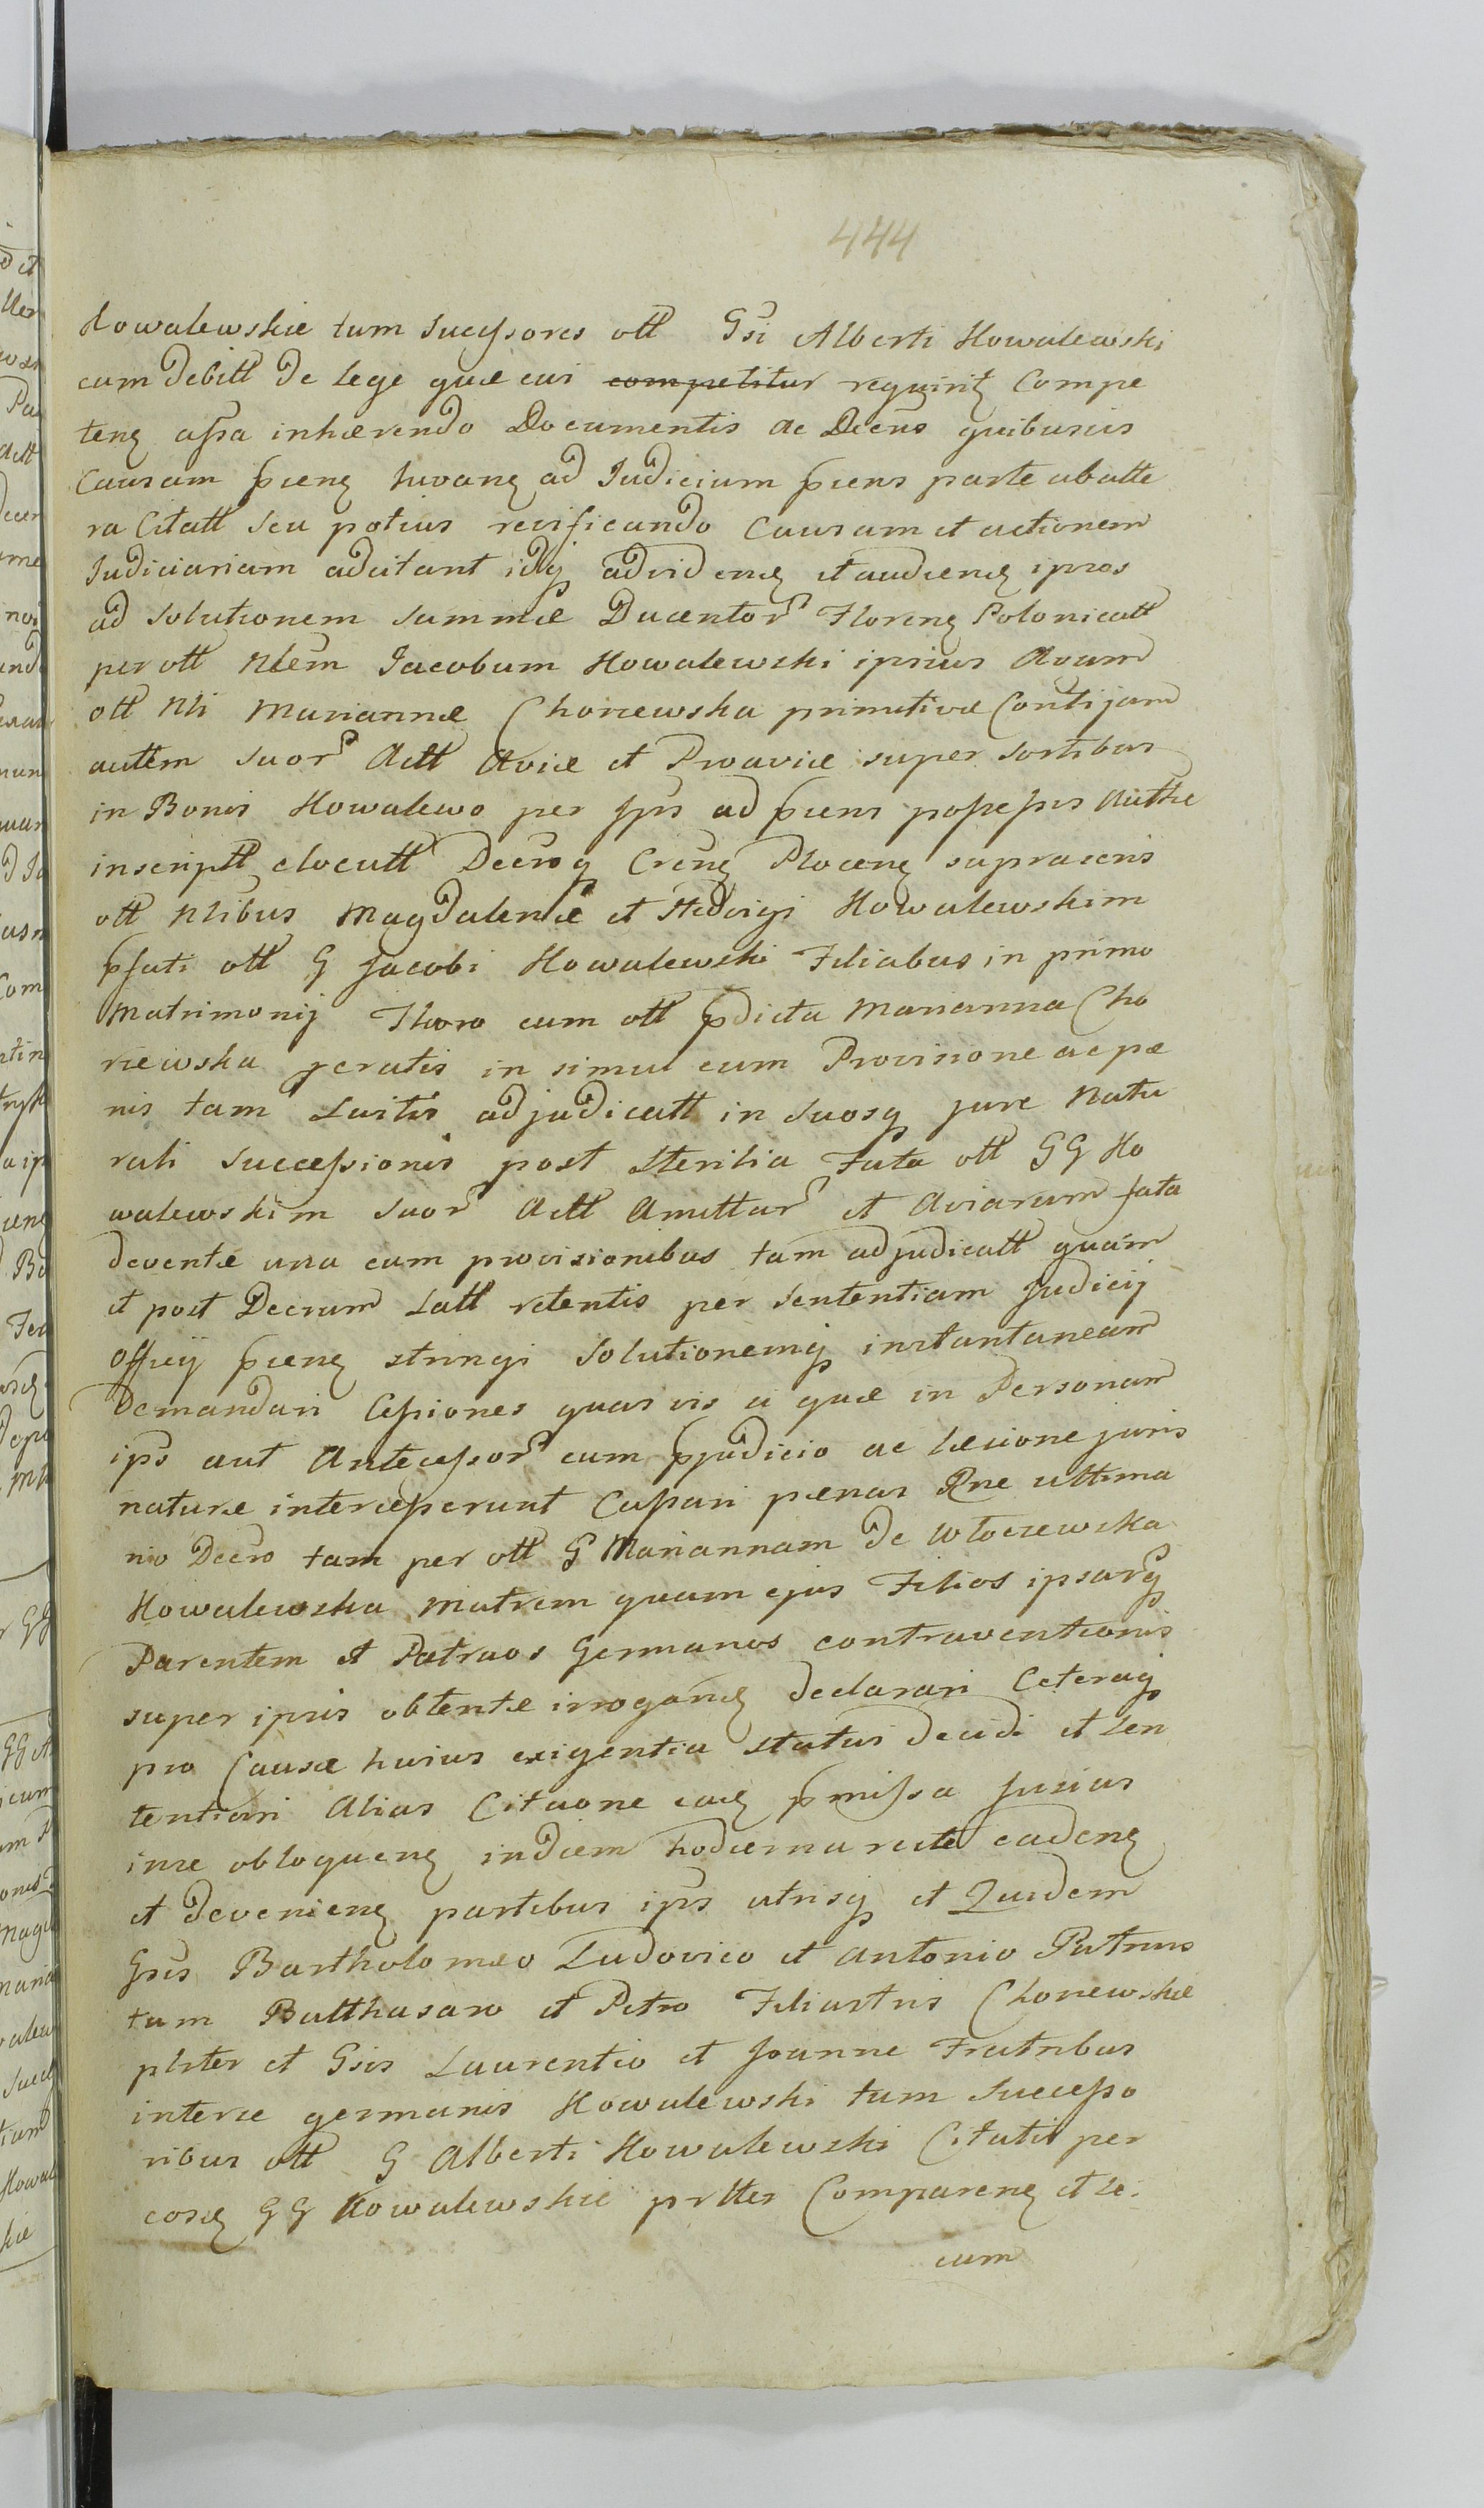 444
Kowalewskie tum Succssores olt Gsi Alberti Kowalewski
cum debitt de lege quæ eas competitur requirit Compe
tenę assa inhærendo Documentis ac Decris quibusvis
Causam pñenę huvanę ad Iudicium pñens parte ab alte
ra Citatt seu potius reificando Causam et actionem
Iudiciariam adcitant idq adviđendę et audiendę ipsos
ad solutionem summæ Ducentor Florenę Polonicatt
per olt Nlem Iacobum Kowalewski ipsius Avum
olt Nli Mariannæ Choriewska primitivæ Conthjam
autem suor Actt Aviæ et Proaviæ super sortibus
in Bonis Kowalewo per ips ad pñens possessis Authe
inscriptt elocutt Decroq Crenę Plocenę suprascris
olt Nlibus Magdalenæ et Hedvigi Kowalewskim
pfati olt G Jacobi Kowalewski Filiabus in primo
Matrimonij Thoro cum olt pdicta Marianna Cho
riewska geratis in simul cum Provisione ac pæ
nis tam Luitis adjudicatt in suosq jure Natu
rali successionis post sterilia Fata olt GG Ko
walewskim suor Actt Amittar et Aviarum fata
deventæ una cum provisionibus tam adjudicatt quam
et post Decrum Latt retentis per Sententiam Judicij
Officij pñenę stringi Solutionemq instantaneam
Demandari Cessiones quas vis a quæ in Personam
ips aut Antecessor cum pjudicio ac læsione juris
naturæ intercesserunt Cassari pænas Rne ultima
rio Decro tam per olt G Mariannam de Wloczewska
Kowalewska Matrem quam ejus Filios ipsarq
Parentem et Patruos Germanos contraventionis
super ipsis obtentæ irroganđ declarari Ceteraq
pro Causæ huius exigentia status decidi et sen
tentiari Alias Citaone eadę pmissa fusius
in se obloquenę in diem hodierna recte cadenę
et devenienę partibus ips utrisq et Quidem
Gsis Bartholomæo Ludovico et Antonio Patruis
tum Balthasaro et Petro Filiastris Choriewskie
plster et Gsis Laurentio et Joanne Fratribus
inter se germanis Kowalewski tum Successo
ribus olt G Alberti Kowalewski Citatis per
eosdę GG Kowalewskie prltes Comparenę et se:
cum